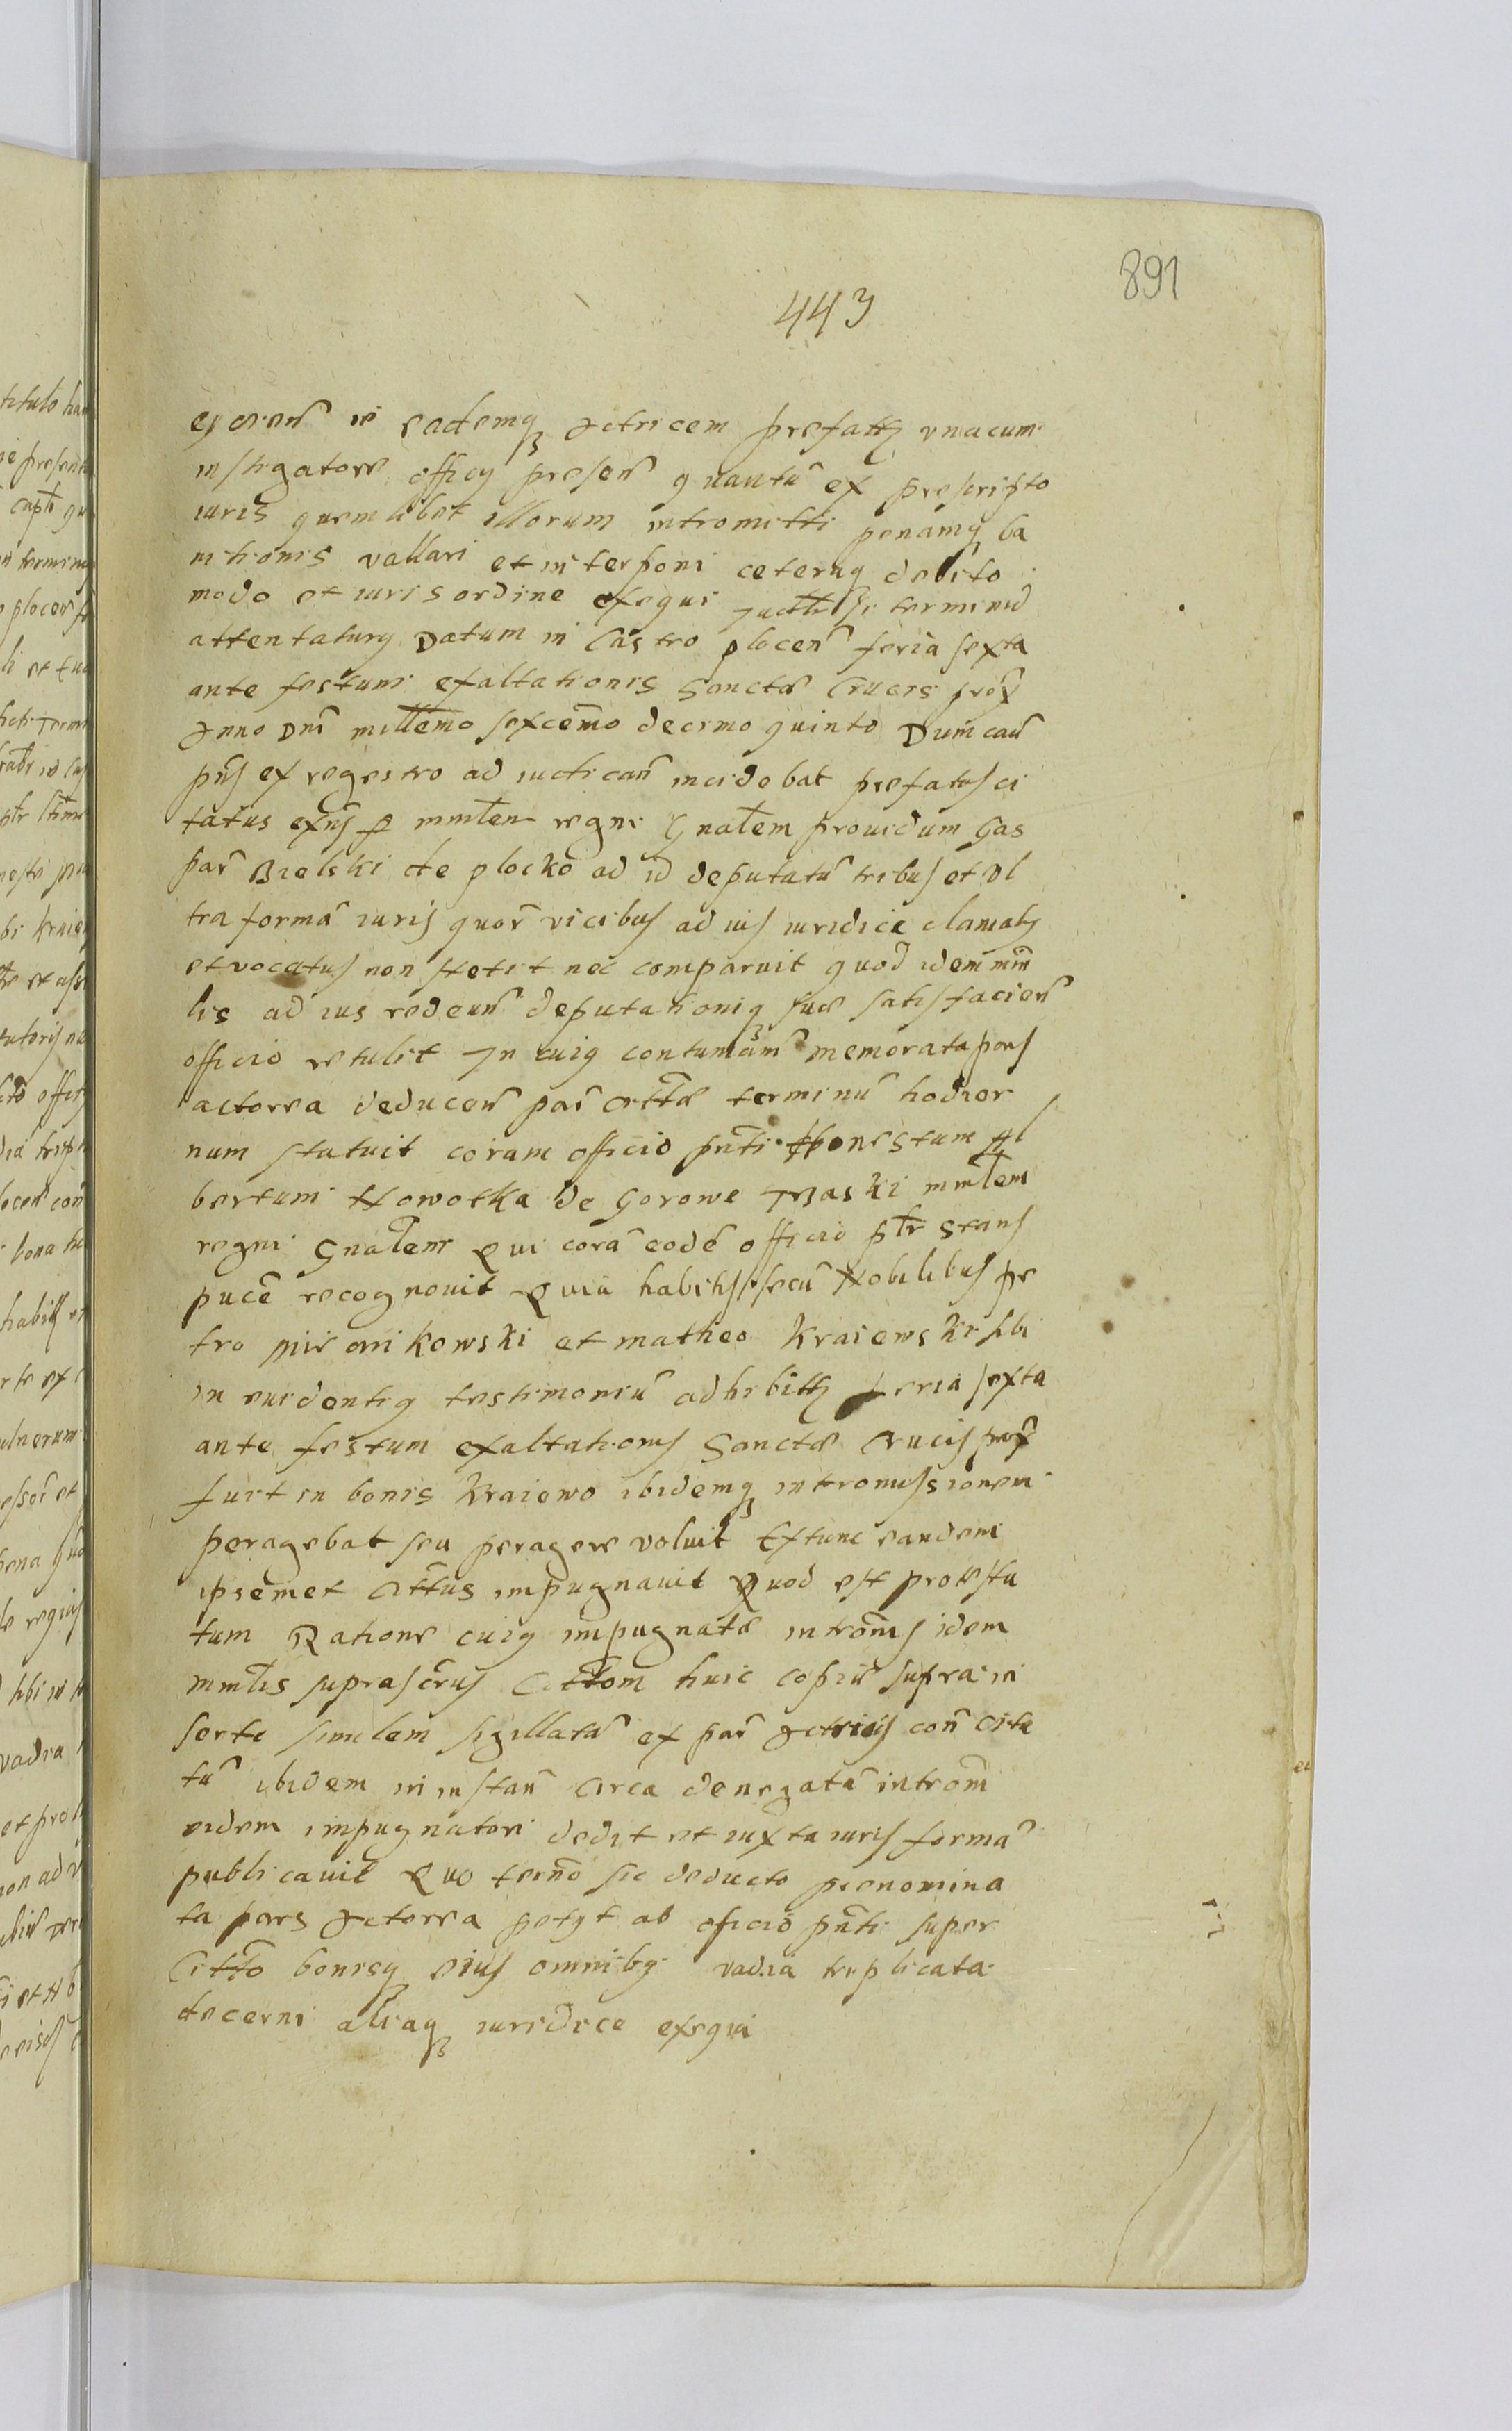 891
443
eademq actricem prefatq unacum
instigatore officy presen quantu ex prescripto
iuris quemlibet illorum intromitti penamq ba
nitionis vallari et interponi ceteraq debito
modo et iuris ordine exequi terminu
attentaturq Datum in Castro plocen feria sexta
ante festum exaltationis Sanctae Crucis prox
Anno Dni millemo sexcemo decimo quinto Dum cau
pns ex regestro ad iudican incidebat prefatus ci
tatus exns p mmlem regni Gnalem prouidum Gas
par Bielski de plocko ad id deputatu tribus et vl
tra forma iuris quor vicibus ad ius iuridice clamatq
et vocatus non stetit nec comparuit quod idem min
lis ad ius redeun deputationiq suae satisfacien
officio retulit In cuiq contumam memorata pars
actorea deducen par Cittae terminu hodier
num statuit coram officio pnti honestum Al
bertum Nowotka de Gorowe Trzaski mmlem
regni Gnalem Qui cora eode officio ptr stans
puce recognouit Quia habitis secu Nobilibus pe
tro et matheo Kraiewski sibi
in euidentiq testimoniu adhibitq feria sexta
ante festum exaltationis Sanctae Crucis prox
fuit in bonis Kraiewo ibidemq intromissionem
peragebat seu peragere voluit Extunc eandem
ipsemet Cittus impugnauit Quod est protesta
tum Ratione cuiq impugnatae introms idem
mmlis suprascrus Cittom huic copiae supra in
sertae similem sigillata ex par Actricis con Cita
tu ibidem in instan circa denegata introm
eidem impugnatori dedit et iuxta iuris forma
publicauit Quo termo sic deducto prenomina
ta pars Actorea petyt ab oficio pnti super
Citto bonisq eius omnibq vadia triplicata
decerni aliaq iuridice exequi